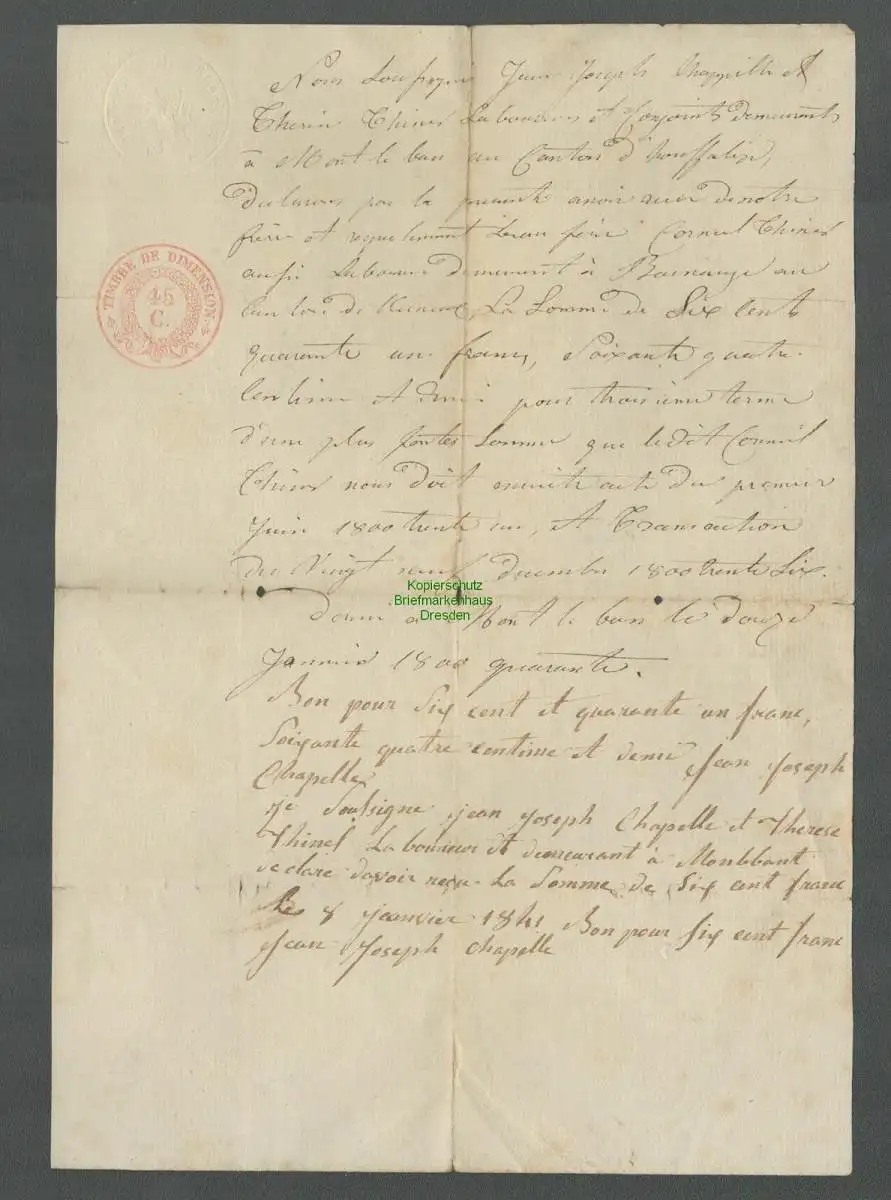 TIMBRE DE DIMENSION
45
C.
Nous Soussigné Jean Joseph Chappelle et
Thinel Laboureurs et Conjoints demeurants
à Mont le ban au Canton d'houffalize,
declarons par la presente avoir recu de notre
frère et respectivement beau frère Corneil Thinel
aussi Laboureur demeurant à au
Canton de La Somme de Six Cent
quarante un francs, Soixante quatre
Centime et demi pour troisieme terme
d'une plus fortes Somme que ledit Corneil
Thinel nous doit acte du premier
Juin 1800 trente un, et Transaction
du Vingt neuf decembre 1800 trente Six.
donné à Mont le ban le douze
Janvier 1800 quarante.
Bon pour six cent et quarante un franc,
Soixante quatre centime et demi Jean Joseph
Chapelle
je Soulsigne jean joseph Chapelle et Therese
Thinel Laboureur et demeurant à Montbbant
declare davoir recu La Somme de Six cent franc
Le 8 janvier 1841 Bon pour six cent franc
Jean Joseph Chapelle
Kopierschutz
Briefmarkenhaus
Dresden